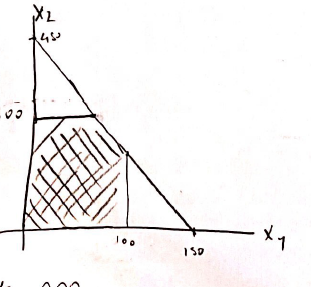 X2
450
00
100
150
X1